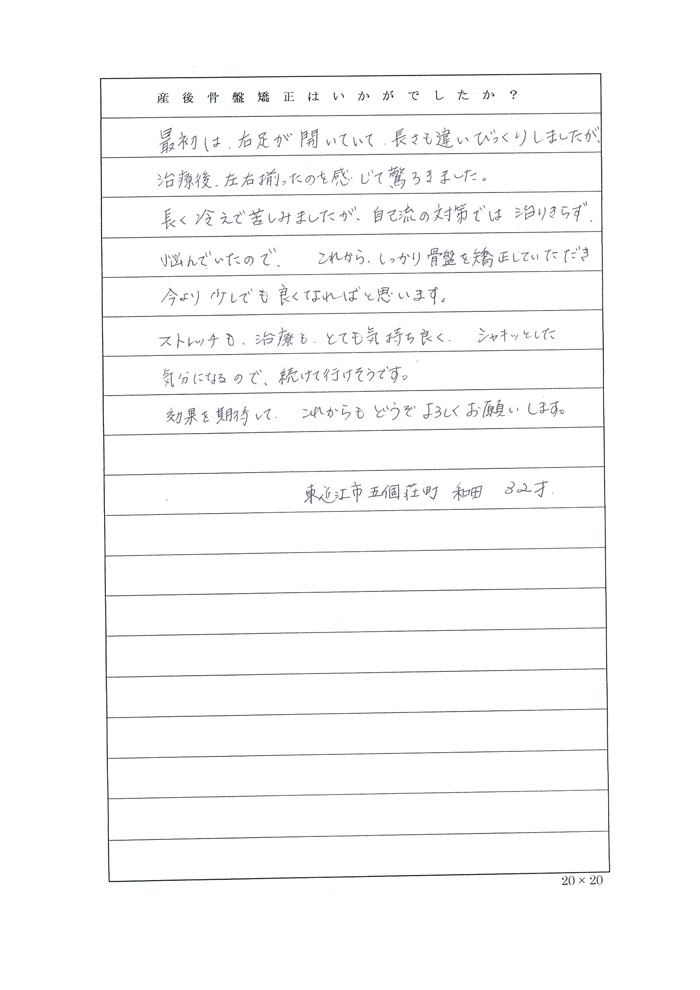 産後骨盤矯正はいかがでしたか？
最初は、右足が開いていて、長さも違いびっくりしましたが、
治療後、左右揃ったのを感じて驚ろきました。
長く冷えで苦しみましたが、自己流の対策では治りきらず、
悩んでいたので、これから、しっかり骨盤を矯正していただき
今より少しでも良くなればと思います。
ストレッチも、治療も、とても気持ち良く、シャキッとした
気分になるので、続けて行けそうです。
効果を期待して、これからもどうぞよろしくお願いします。
東近江市五個荘町 和田 32才.
20×20